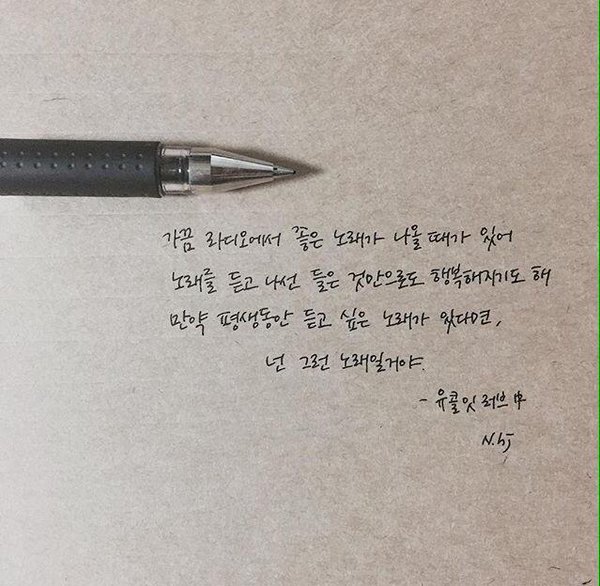 가끔 라디오에서 좋은 노래가 나올 때가 있어
노래를 듣고 나선 들은 것만으로도 행복해지기도 해
만약 평생동안 듣고 싶은 노래가 있다면,
넌 그런 노래일거야.
- 유콜잇러브 中
N.hj